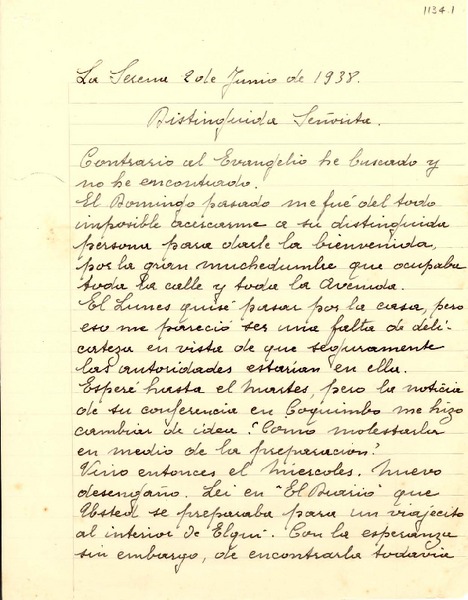 1134.1
La Serena 2 de Junio de 1938.
Distinguida Señorita.
Contrario al Evangelio he buscado y
no he encontrado.
El Domingo pasado me fué del todo
imposible acercarme a su distinguida
persona para darle la bienvenida,
por la gran muchedumbre que ocupaba
toda la calle y toda la Avenida.
El Lunes quise pasar por la casa, pero
eso me pareció ser una falta de deli-
cateza en vista de que seguramente
las autoridades estarían en ella.
Esperé hasta el Martes, pero la noticia
de su conferencia en Coquimbo me hizo
cambiar de idea. ¿Como molestarla
en medio de la preparacion?
Vino entonces el Miercoles. Nuevo
desengaño. Lei en "El Diario" que
Usted se preparaba para un viajecito
al interior de Elqui. Con la esperanza
sin embargo, de encontrarla todavia